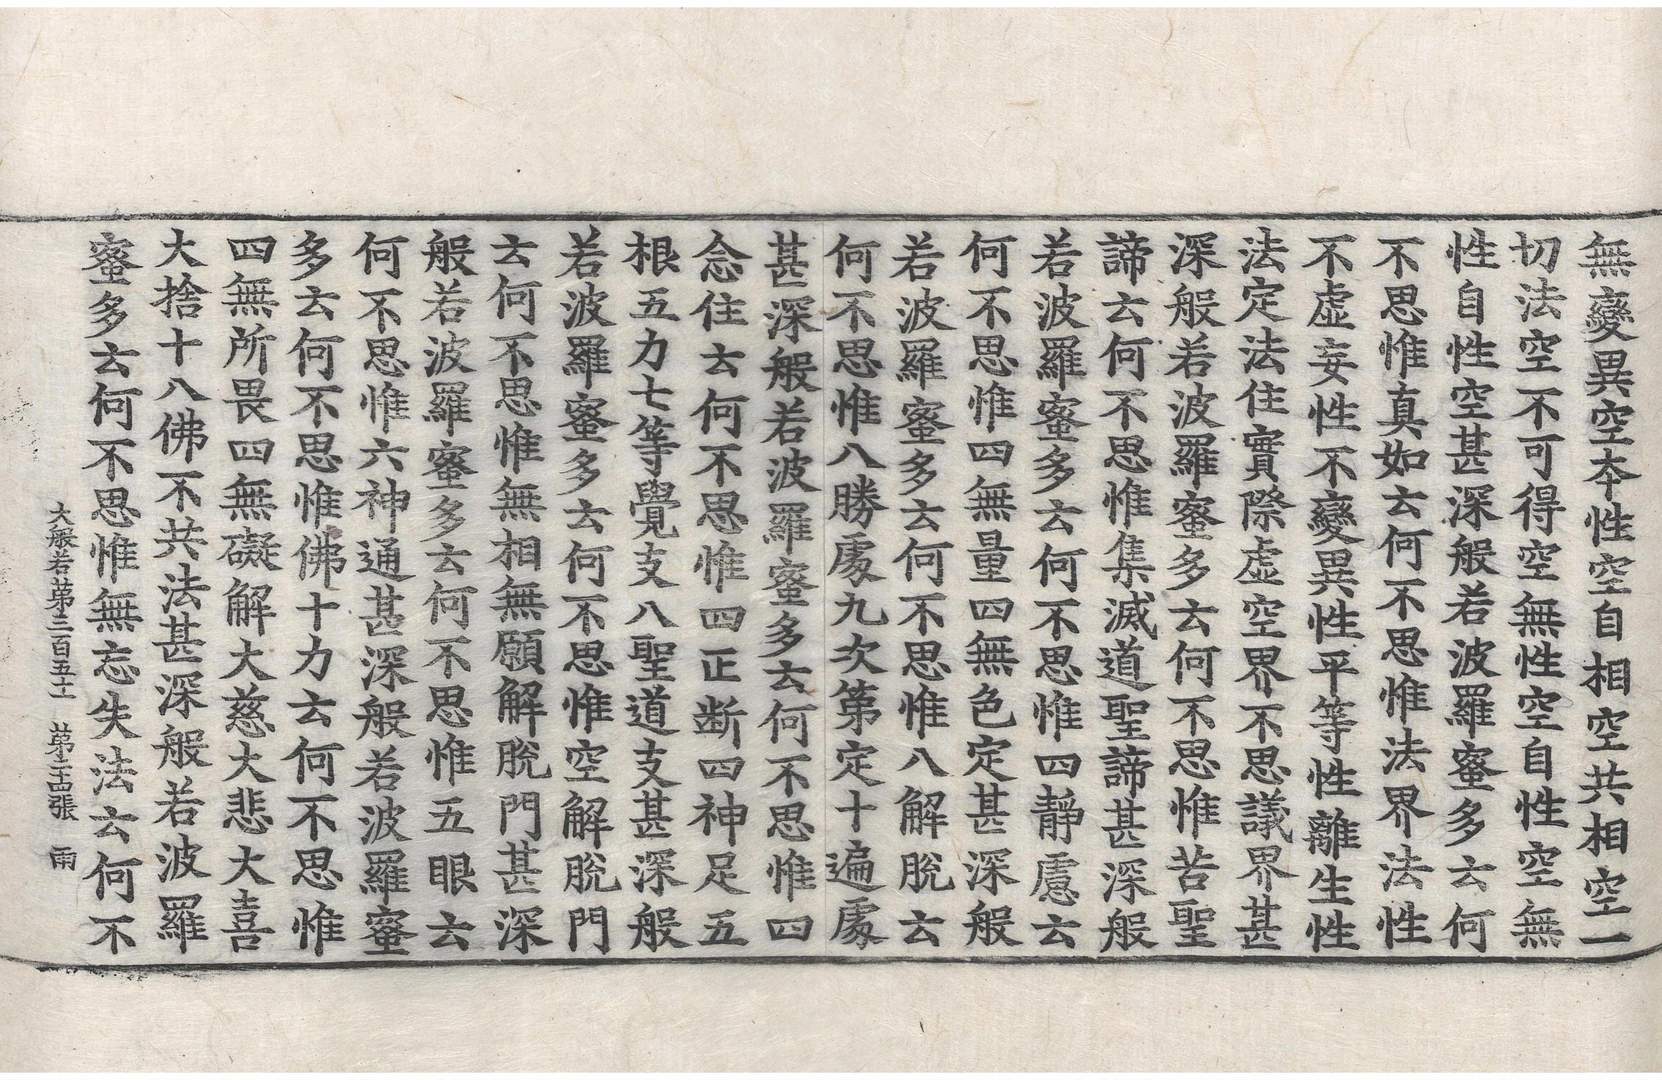 無變異空本性空自相空共相空一
切法空不可得空無性空自性空無
性自性空甚深般若波羅蜜多云何
不思惟真如云何不思惟法界法性
不虛妄性不變異性平等性離生性
法定法住實際虛空界不思議界甚
深般若波羅蜜多云何不思惟苦聖
諦云何不思惟集滅道聖諦甚深般
若波羅蜜多云何不思惟四靜慮云
何不思惟四無量四無色定甚深般
若波羅蜜多云何不思惟八解脫云
何不思惟八勝處九次第定十遍處
甚深般若波羅蜜多云何不思惟四
念住云何不思惟四正断四神足五
根五力七等覺支八聖道支甚深般
若波羅蜜多云何不思惟空解脫門
云何不思惟無相無願解脫門甚深
般若波羅蜜多云何不思惟五眼云
何不思惟六神通甚深般若波羅蜜
多云何不思惟佛十力云何不思惟
四無所畏四無礙解大慈大悲大喜
大捨十八佛不共法甚深般若波羅
蜜多云何不思惟無忘失法云何不
大般若第三百五十 第二十四張 雨